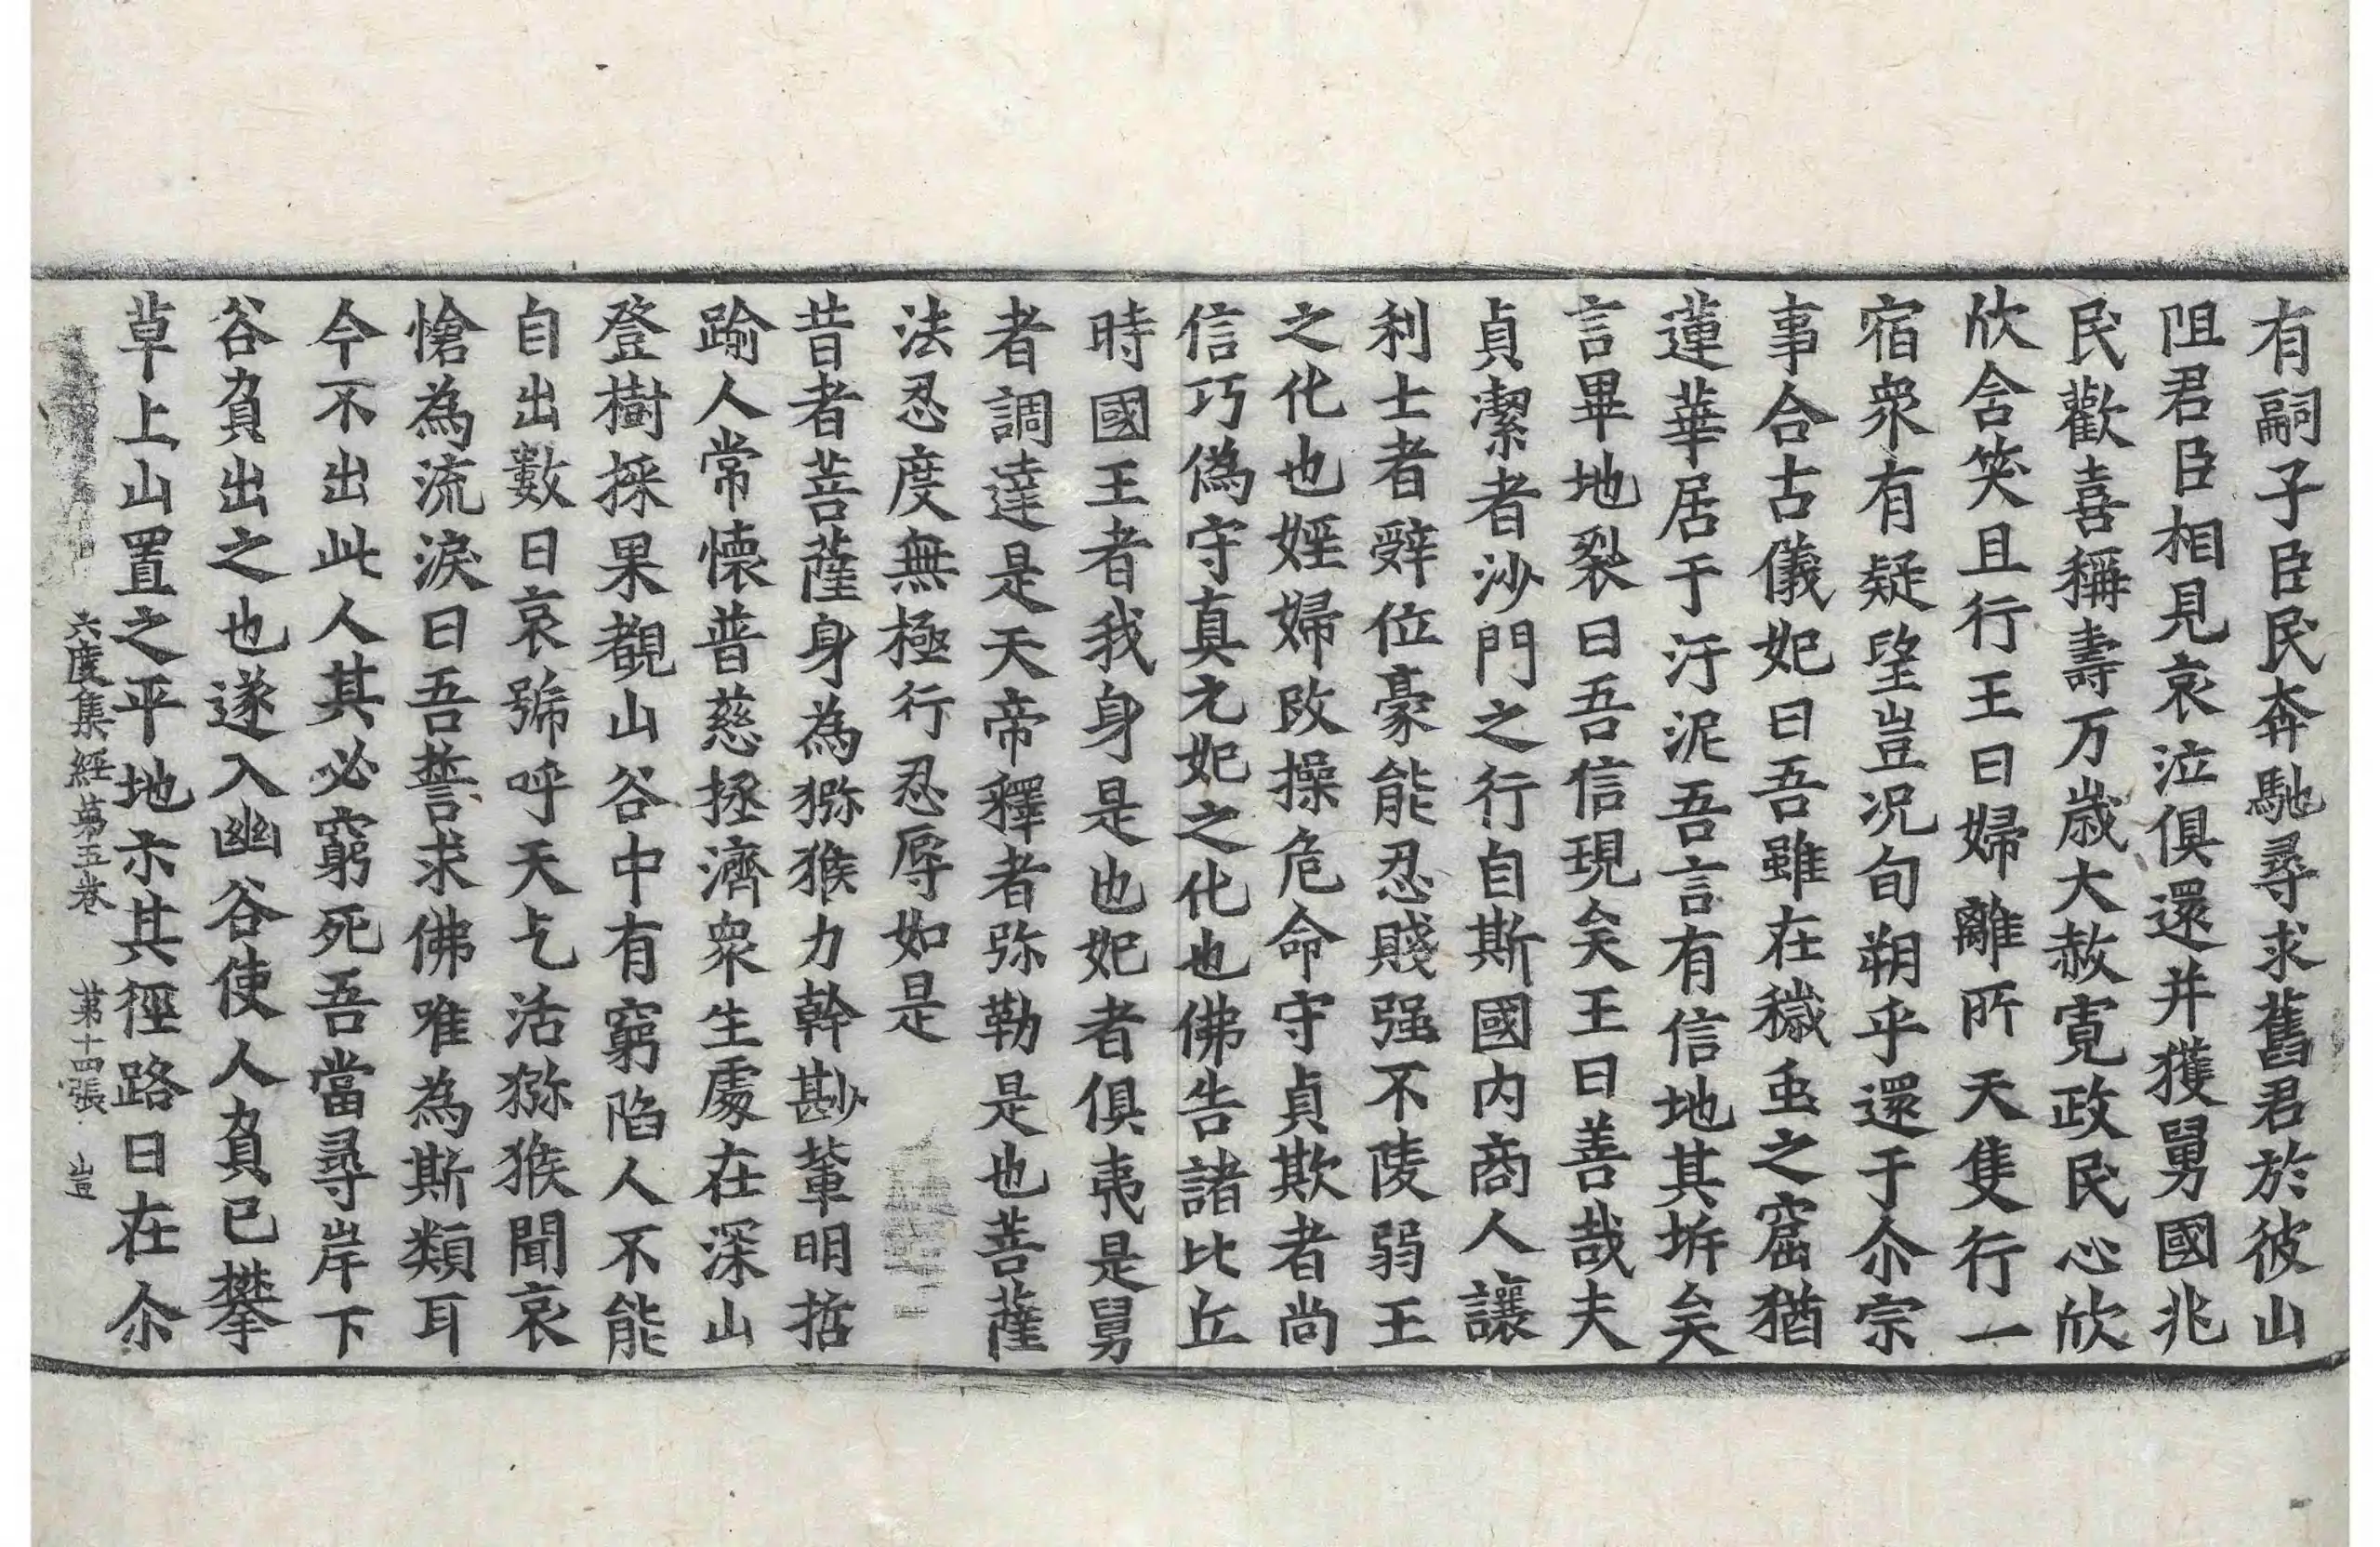 有嗣子臣民奔馳尋求舊君於彼山
阻君臣相見哀泣俱還并獲舅國兆
民歡喜稱壽万歲大赦寬政民心欣
欣含笑且行王曰婦離所天隻行一
宿衆有疑望豈况旬朔乎還于尒宗
事合古儀妃曰吾雖在穢虫之窟猶
蓮華居于汙泥吾言有信地其坼矣
言畢地裂曰吾信現矣王曰善哉夫
貞潔者沙門之行自斯國内商人讓
利士者辤位豪能忍賤强不陵弱王
之化也婬婦改操危命守貞欺者尚
信巧偽守真元妃之化也佛告諸比丘
時國王者我身是也妃者俱夷是舅
者調達是天帝釋者弥勒是也菩薩
法忍度無極行忍辱如是
昔者菩薩身為獼猴力幹尠輩明哲
踰人常懷普慈拯濟衆生處在深山
登樹採果覩山谷中有窮陷人不能
自出數日哀號呼天乞活獼猴聞哀
愴為流淚曰吾誓求佛唯為斯類耳
今不出此人其必窮死吾當尋岸下
谷負出之也遂入幽谷使人負已攀
草上山置之平地示其徑路曰在尒
六度集經第五卷 第十四張 豈